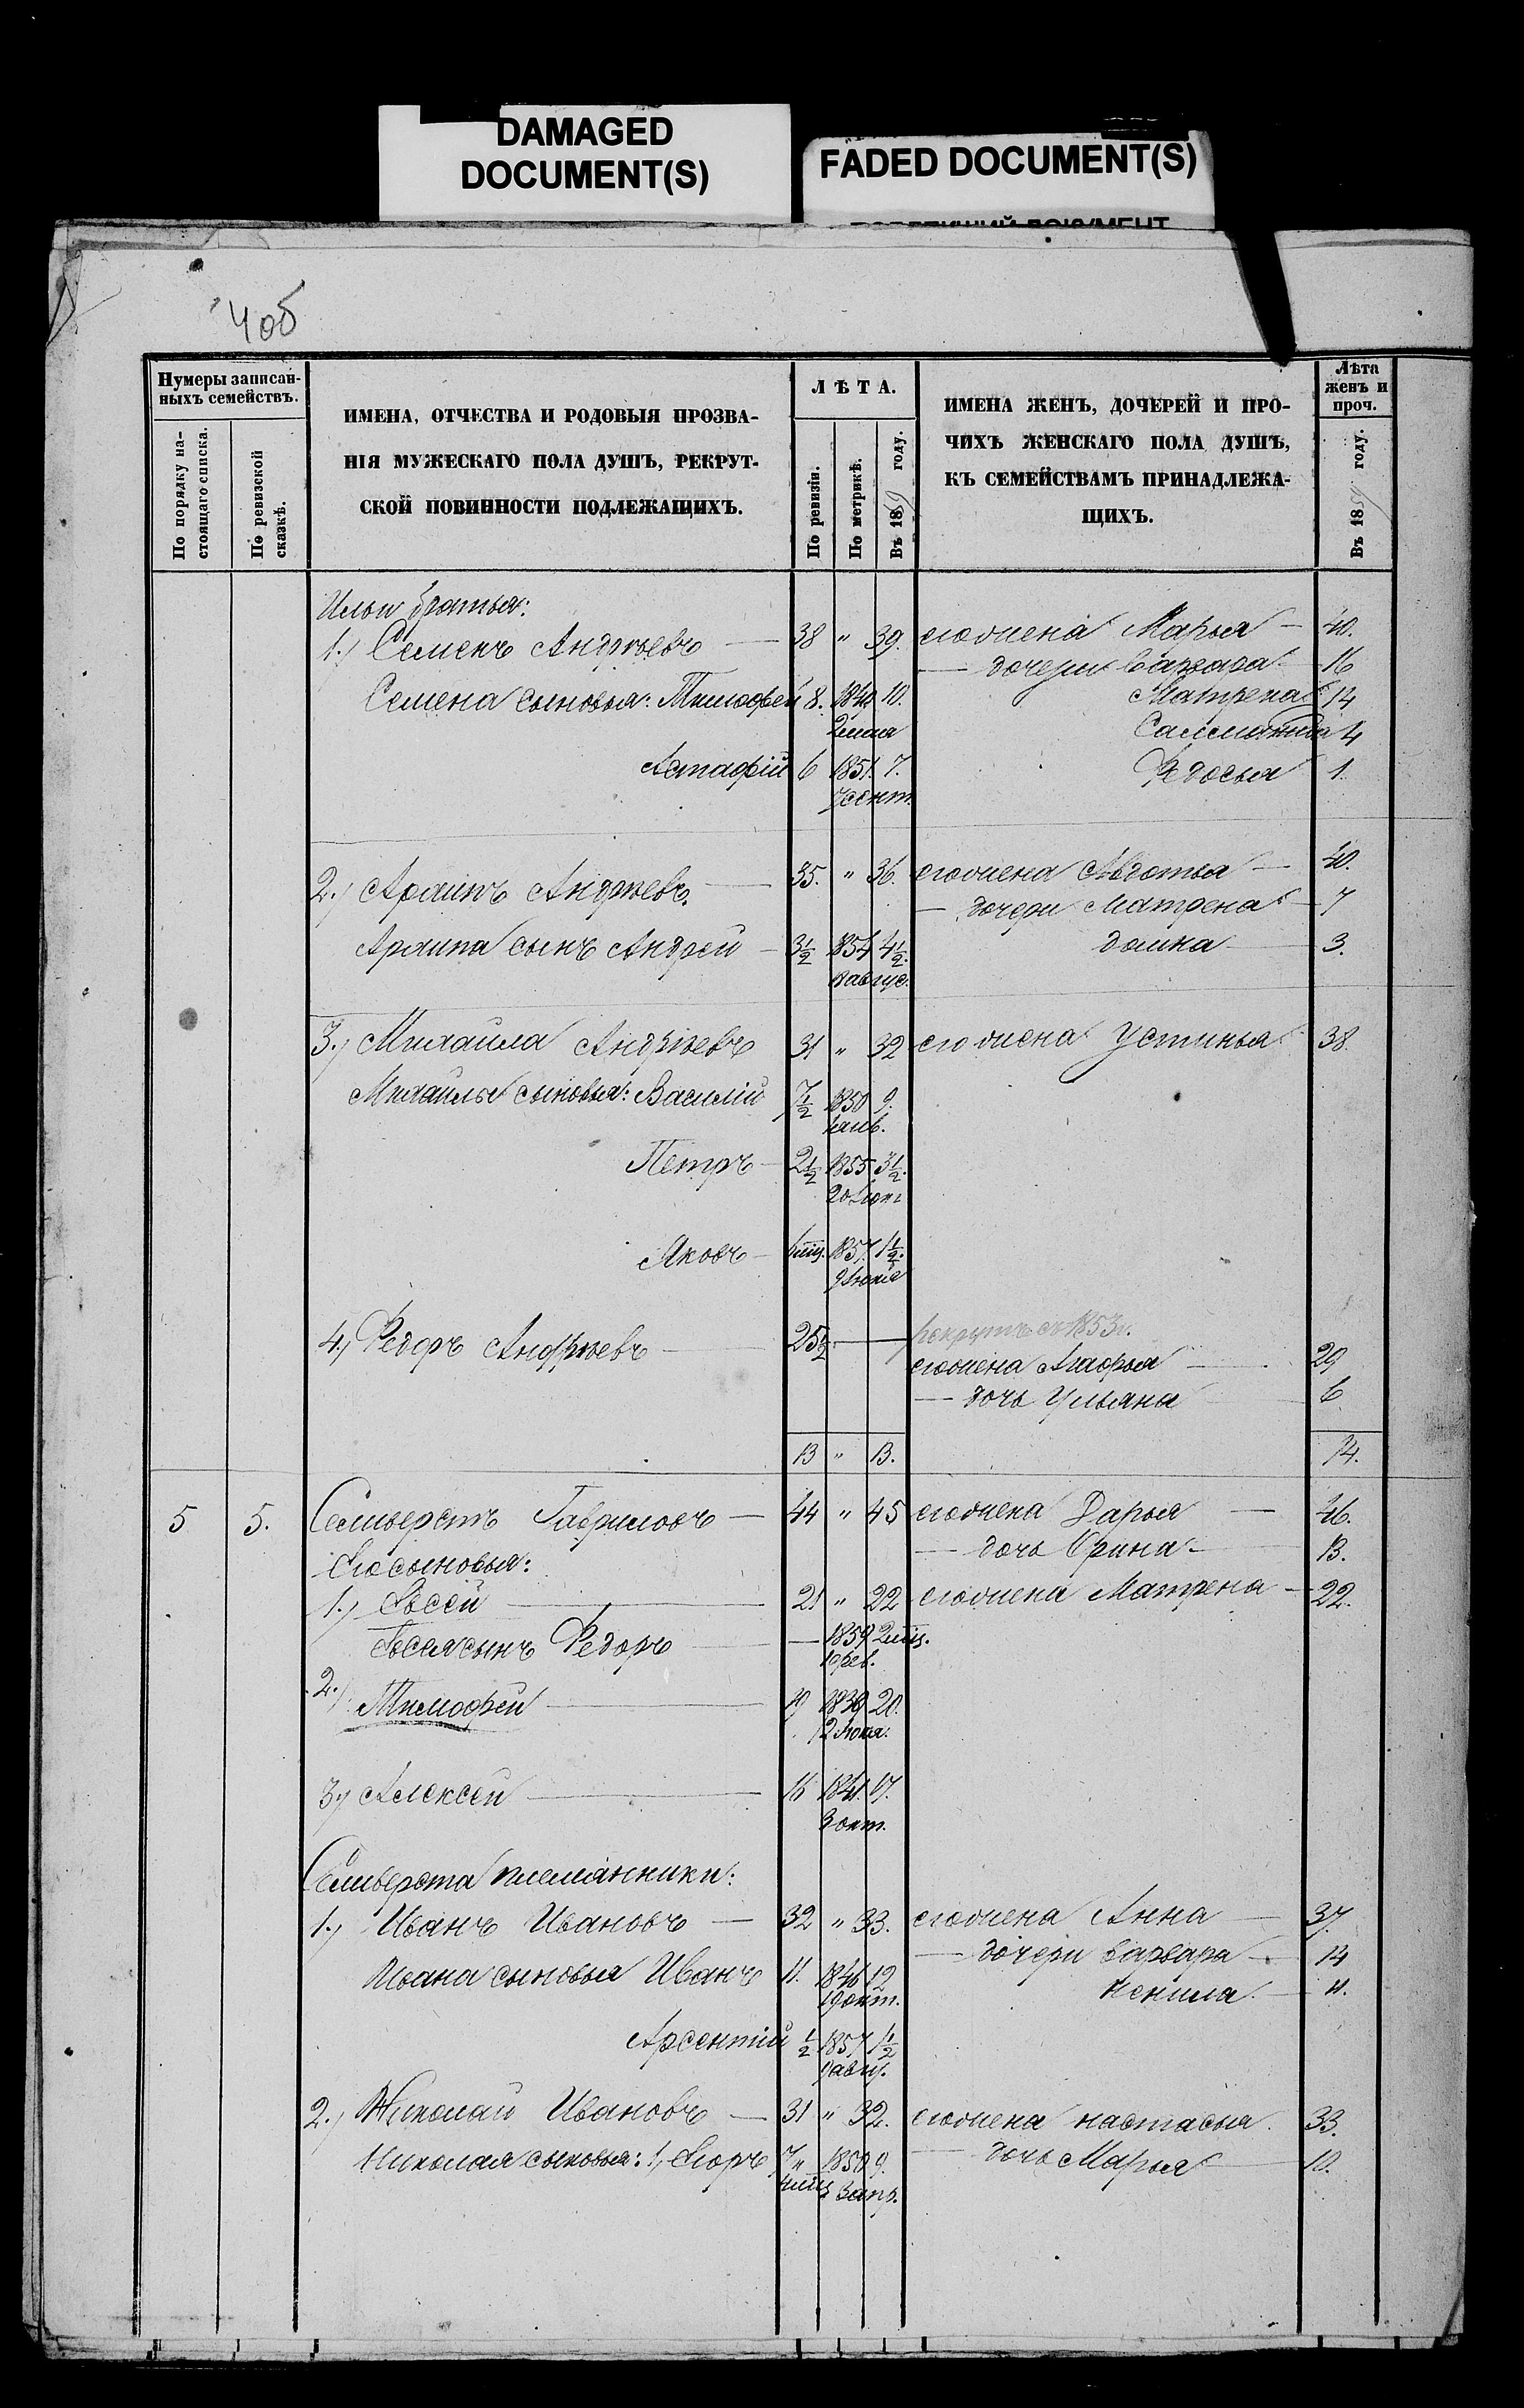 DAMAGED
DOCUMENT(S)
FADED DOCUMENT(S)
4об
Нумеры записан-
ныхъ семействъ.
По порядку на-
стоящаго списка.
По ревизской
сказкѣ.
ИМЕНА, ОТЧЕСТВА И РОДОВЫЯ ПРОЗВА-
НІЯ МУЖЕСКАГО ПОЛА ДУШЪ, РЕКРУТ-
СКОЙ ПОВИННОСТИ ПОДЛЕЖАЩИХЪ.
ЛѢТА.
По ревизіи.
По метрикѣ.
Въ 1859 году.
ИМЕНА ЖЕНЪ, ДОЧЕРЕЙ И ПРО-
ЧИХЪ ЖЕНСКАГО ПОЛА ДУШЪ,
КЪ СЕМЕЙСТВАМЪ ПРИНАДЛЕЖА-
ЩИХЪ.
Лѣта
женъ и
проч.
Въ 1859 году.
Ильи братья:
1.) Семенъ Андрѣевъ — 38 " 39. его жена Марья — 40.
— дочери Варвара — 16
Семена сыновья: Тимофей 8. 10. Матрена 14
2 мая 4
Астафій 6 1851. 7. Федосья 1.
сент.
2.) Архипъ Андрѣевъ. — 35. " 36. его жена Авдотья — 40.
— дочери Матрена — 7
Архипа сынъ Андрей — 3½ 1854 4½. домка — 3.
август.
3.) Михайла Андрѣевъ 31 " 32 его жена Устинья 38.
Михайлы сыновья: Василій 7½ 1850 9.
1 янв.
Петръ — 2½ 1855 3½.
20
Яковъ — 1857. 1½.
9 Іюня
4.) Федоръ Андрѣевъ — 25½ — рекрутъ съ 1853 г.
его жена Агафья — 29
— дочь Ульяна 6
13 " 13. 14.
5 5. Селиверстъ Гавриловъ — 44 " 45 его жена Дарья — 46.
— дочь Орина — 13.
Его сыновья:
1.) Евсей — 21 " 22 его жена Матрена — 22.
Евсея сынъ Федоръ — 1859 2 мѣц.
фев.
2.) Тимофей — 19 1839 20.
Іюня.
3.) Алексей — 16 1841. 17.
3 окт.
Селиверста племянники:
1.) Иванъ Ивановъ — 32 " 33. его жена Анна — 37.
— дочери Варвара — 14
Ивана сыновья Иванъ 11. 1846 12
19 окт. 11.
Арсентій ½ 1857 1½
авгу.
2.) Николай Ивановъ — 31 " 32. его жена настасья. 33.
— дочь Марья — 10.
Николая сыновья: 1, Егоръ 7 " 1850 9.
мѣц. 3 апр.